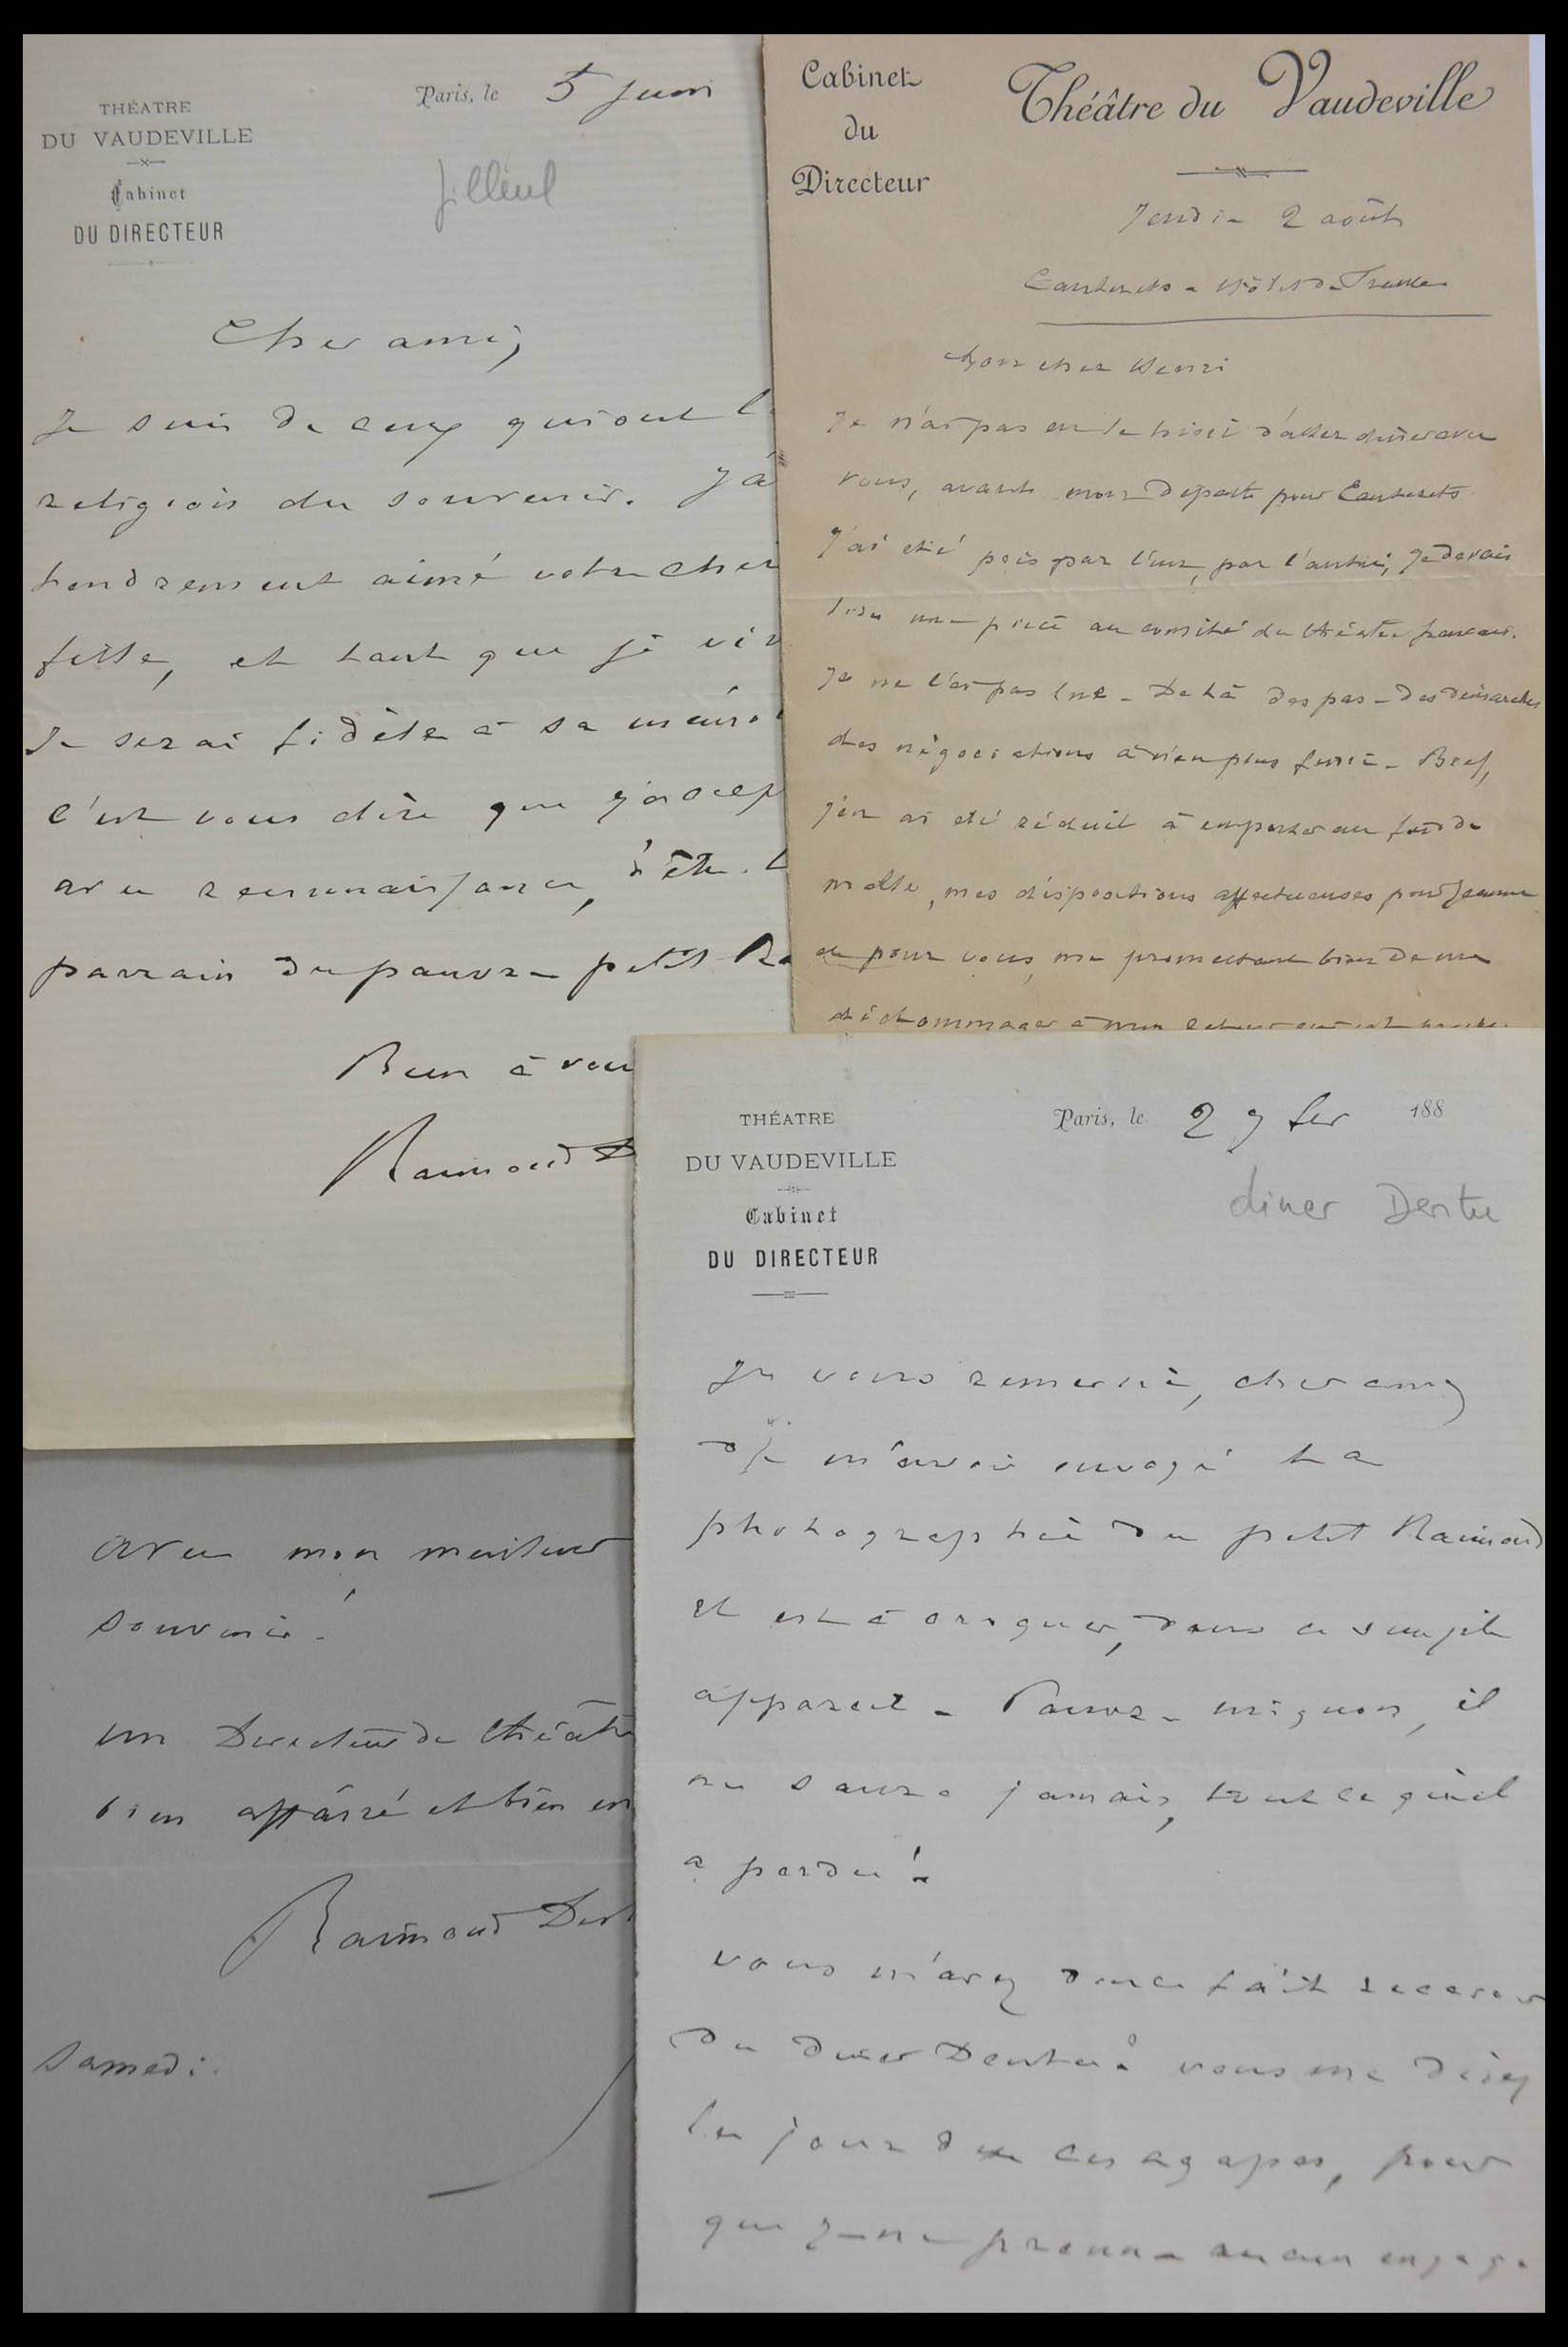 THÉATRE
DU VAUDEVILLE
Cabinet
DU DIRECTEUR
Paris, le 5 juin
filleul
Cher ami,
Je suis de ceux qui ont l
religion du souvenir. J'a
tendrement aimé votre cher
fille, et tant que je viv
Je serai fidèle à sa mémoi
C'est vous dire que j'accep
avec reconnaissance, d'être l
parrain du pauvre petit Ra
Bien à vou
Raimond D
Cabinet
du
Directeur
Théâtre du Vaudeville
Jeudi 2 août
Cauterets - Hôtel de France
Mon cher Henri
Je n'ai pas eu le loisir d'aller diner avec
vous, avant mon départ pour Cauterets
J'ai été pris par l'un, par l'autre, je devais
lire une pièce au comité du théâtre français.
Je ne l'ai pas lue - De là des pas - des démarches
des négociations à n'en plus finir - Bref,
j'en ai été réduit à emporter au fond de
malle, mes dispositions affectueuses pour Jeanne
et pour vous, me promettant bien de me
dédommager à mon retour
THÉATRE
DU VAUDEVILLE
Cabinet
DU DIRECTEUR
Paris, le 27 fev 188
diner Dentu
Je vous remercie, cher ami
de m'avoir envoyé la
photographie du petit Raimond
Il est à croquer, dans ce simple
appareil - Pauvre mignon, il
ne saura jamais, tout ce qu'il
a perdu!
Vous m'avez donc fait recevoir
du diner Dentu? vous me direz
le jour de ces agapes, pour
que je ne prenne aucun engage
avec mon meilleur
souvenir.
un Directeur de théâtre
bien affairé et bien en
Raimond Desl
Samedi.